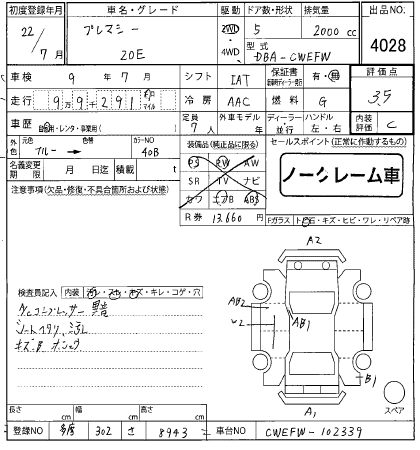 初度登録年月 車名・グレード 駆動 ドア数・形状 排気量 出品NO
22/7月 プレマシー 20E 2WD 4WD 5 2000cc 4028
型式 DBA-CWEFW
車検 9年7月 シフト IAT 保証書 有・無 評価点 3.5
走行 99291 キロ マイル 冷房 AAC 燃料 G
車歴 自家用・レンタ・事業用( ) 定員 7人 外車モデル 年 ディーラー・並行 ハンドル 左・右 内装評価 C
外色 元色 ブルー → 色替 カラーNO 40B
装備品(純正品に限る) セールスポイント(正常に作動するもの)
名義変更期限 月 日迄 積載 t
PS PW AW
SR TV ナビ
カワ エアB ABS
ノークレーム車
R券 13,660円
注意事項(欠品・修復・不具合箇所および状態)
Fガラス トビ石・キズ・ヒビ・ワレ・リペア跡
A2
検査員記入 内装 キレ・コゲ・穴
コンプレッサー異音
AB2
AB1
B1
A1
スペア
長さ cm 幅 cm 高さ cm
登録NO 多摩 302 さ 8943 車台NO CWEFW-102339